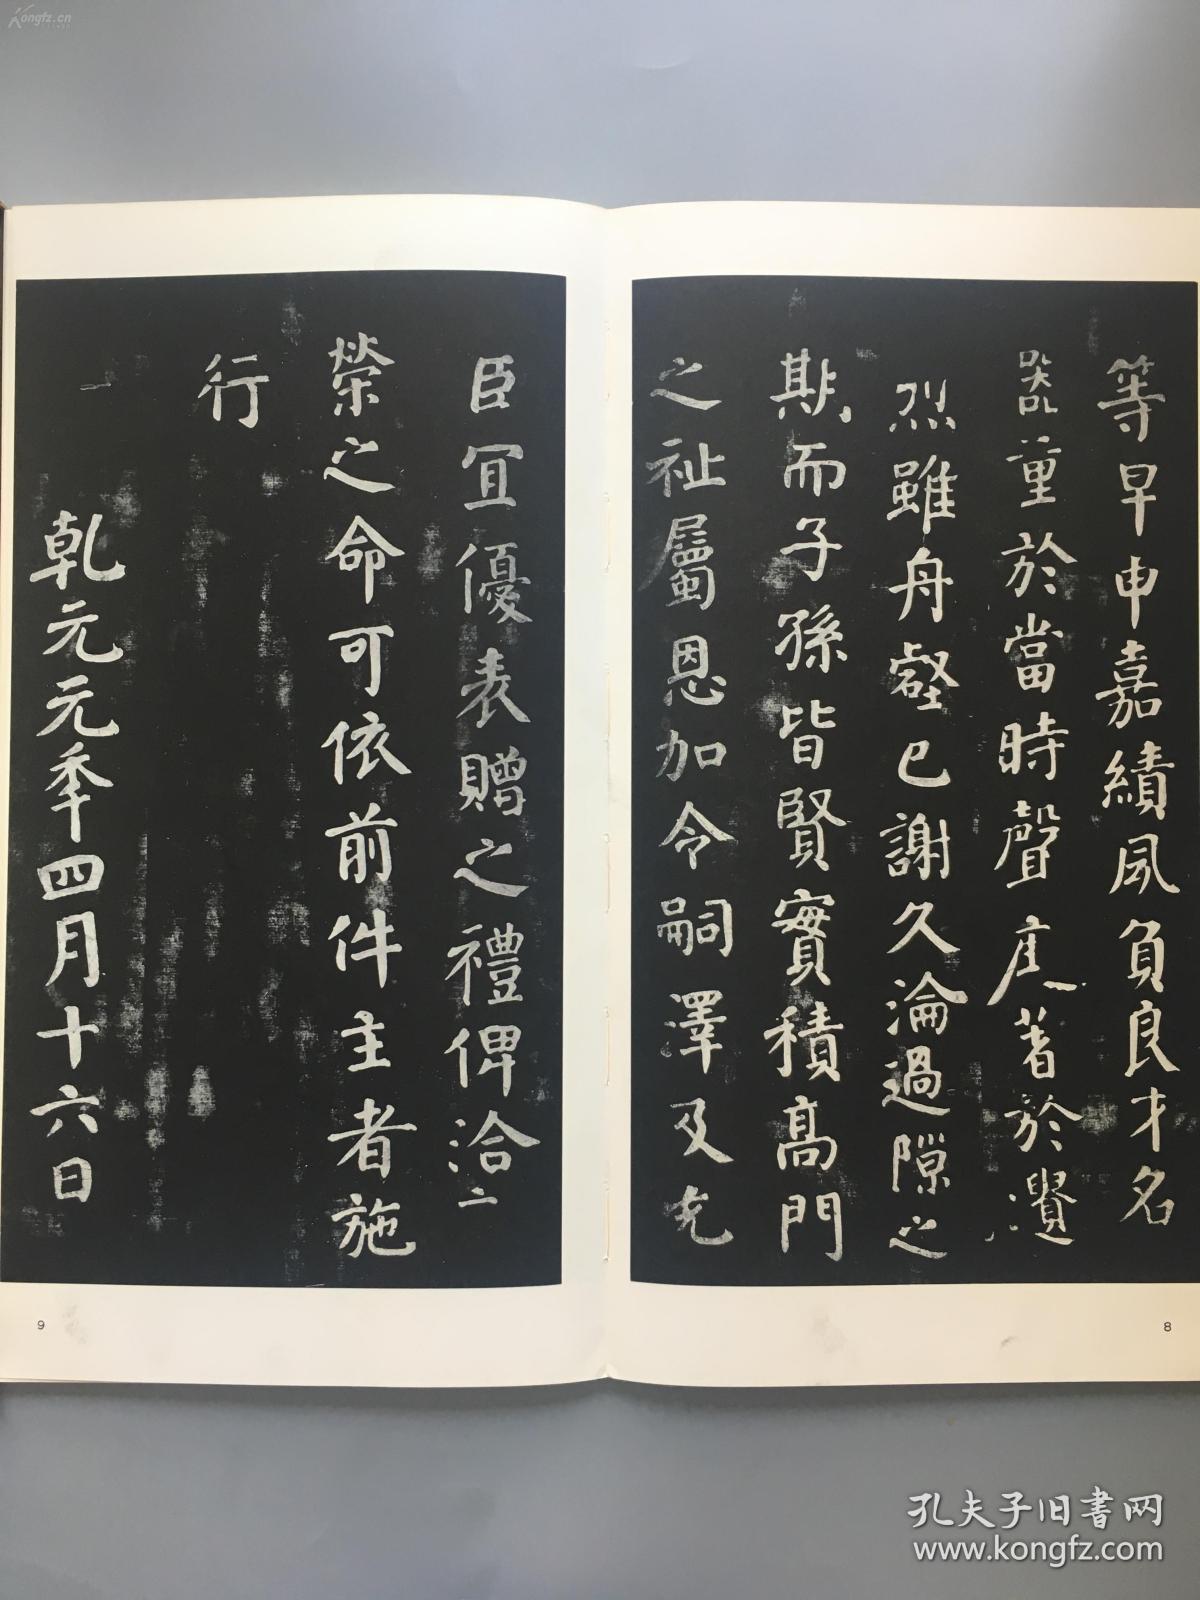 Kongfz.cn
等早申嘉績夙負良才名
器重於當時聲塵著於纘
烈雖舟壑已謝久淪過隙之
斯而子孫皆賢實積高門
之祉屬恩加令嗣澤及先
臣宜優表贈之禮俾洽二
榮之命可依前件主者施
行
乾元元年四月十六日
8
9
孔夫子旧书网
www.kongfz.com